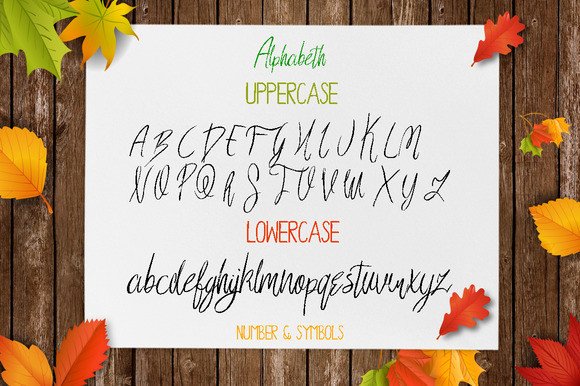 Alphabeth
UPPERCASE
A B C D E F G H I J K L M
N O P Q R S T U V W X Y Z
LOWERCASE
abcdefghijklmnopqrstuvwxyz
NUMBER & SYMBOLS